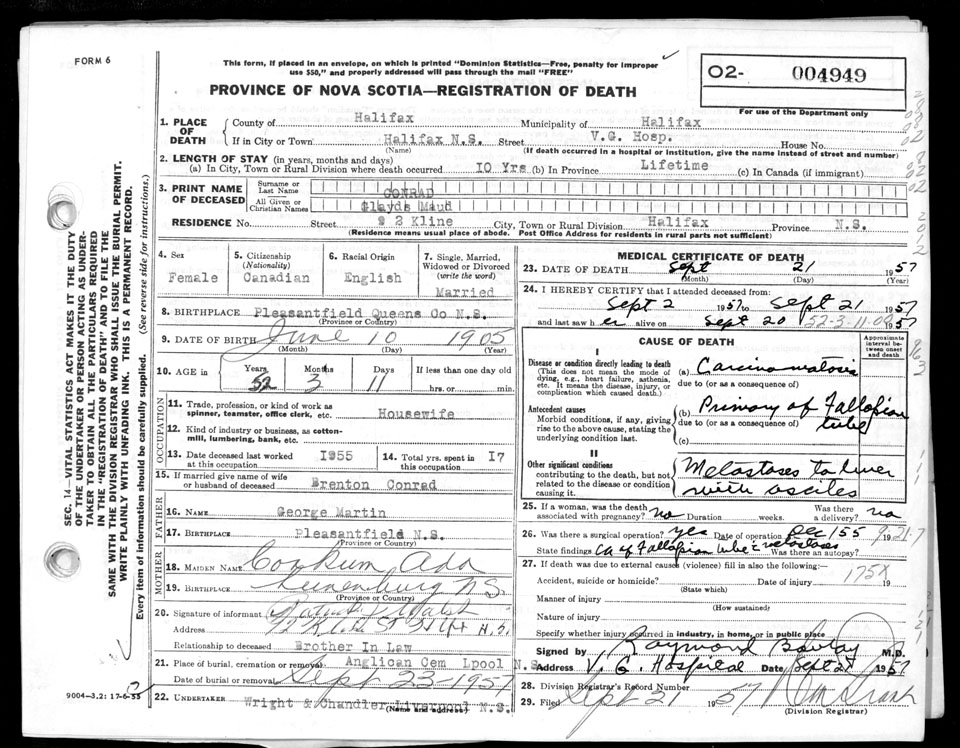 FORM 6
This form, if placed in an envelope, on which is printed "Dominion Statistics—Free, penalty for improper
use $50," and properly addressed will pass through the mail "FREE"
O2- 004949
For use of the Department only
PROVINCE OF NOVA SCOTIA—REGISTRATION OF DEATH
1. PLACE OF DEATH
County of Halifax Municipality of Halifax
If in City or Town Halifax N.S. Street V.G. Hosp. House No.
(Name) (If death occurred in a hospital or institution, give the name instead of street and number)
2. LENGTH OF STAY (in years, months and days)
(a) In City, Town or Rural Division where death occurred 10 Yrs (b) In Province Lifetime (c) In Canada (if immigrant)
3. PRINT NAME OF DECEASED
Surname or Last Name CONRAD
All Given or Christian Names Glayds Maud
RESIDENCE No. Street 2 Kline City, Town or Rural Division Halifax Province N.S.
(Residence means usual place of abode. Post Office Address for residents in rural parts not sufficient)
4. Sex Female
5. Citizenship (Nationality) Canadian
6. Racial Origin English
7. Single, Married, Widowed or Divorced (write the word) Married
8. BIRTHPLACE Pleasantfield Queens Co N.S.
(Province or Country)
9. DATE OF BIRTH June 10 1905
(Month) (Day) (Year)
10. AGE in Years 52 Months 3 Days 11 If less than one day old hrs. or min.
OCCUPATION
11. Trade, profession, or kind of work as spinner, teamster, office clerk, etc. Housewife
12. Kind of industry or business, as cotton-mill, lumbering, bank, etc.
13. Date deceased last worked at this occupation 1955
14. Total yrs. spent in this occupation 17
15. If married give name of wife or husband of deceased Brenton Conrad
FATHER
16. NAME George Martin
17. BIRTHPLACE Pleasantfield N.S.
(Province or Country)
MOTHER
18. MAIDEN NAME Conkum Ada
19. BIRTHPLACE Lunenburg N.S.
(Province or Country)
20. Signature of informant Walsh
Address N.S.
Relationship to deceased Brother In Law
21. Place of burial, cremation or removal Anglican Cem Lpool N.S.
Date of burial or removal Sept 23-1957
22. UNDERTAKER Wright & Chandler Liverpool N.S.
(Name and address)
MEDICAL CERTIFICATE OF DEATH
23. DATE OF DEATH Sept 21 1957
(Month) (Day) (Year)
24. I HEREBY CERTIFY that I attended deceased from:
Sept 2 1957 to Sept 21 1957
and last saw her alive on Sept 20 1957
52-3-11-09
CAUSE OF DEATH
Approximate interval between onset and death
I
Disease or condition directly leading to death
(This does not mean the mode of dying, e.g., heart failure, asthenia, etc. It means the disease, injury, or complication which caused death.)
(a) Carcinomatosis
due to (or as a consequence of)
Antecedent causes
Morbid conditions, if any, giving rise to the above cause, stating the underlying condition last.
(b) Primary of Fallopian tube
due to (or as a consequence of)
(c)
II
Other significant conditions
contributing to the death, but not related to the disease or condition causing it.
Metastases to liver
with ascites
25. If a woman, was the death associated with pregnancy? no Duration weeks. Was there a delivery? no
26. Was there a surgical operation? yes Date of operation Dec '55
State findings Ca of Fallopian tube & metastases Was there an autopsy?
27. If death was due to external causes (violence) fill in also the following:
Accident, suicide or homicide? Date of injury 19
175X
(State which)
Manner of injury
(How sustained)
Nature of injury
Specify whether injury occurred in industry, in home, or in public place
Signed by Raymond M.D.
Address V. G. Hospital Date Sept 21 1957
28. Division Registrar's Record Number
29. Filed Sept 21 1957
(Division Registrar)
SEC. 14—VITAL STATISTICS ACT MAKES IT THE DUTY
OF THE UNDERTAKER OR PERSON ACTING AS UNDER-
TAKER TO OBTAIN ALL THE PARTICULARS REQUIRED
IN THE "REGISTRATION OF DEATH" AND TO FILE THE
SAME WITH THE DIVISION REGISTRAR WHO SHALL ISSUE THE BURIAL PERMIT.
WRITE PLAINLY WITH UNFADING INK. THIS IS A PERMANENT RECORD.
Every item of information should be carefully supplied. (See reverse side for instructions.)
9004-3.2: 17-6-55